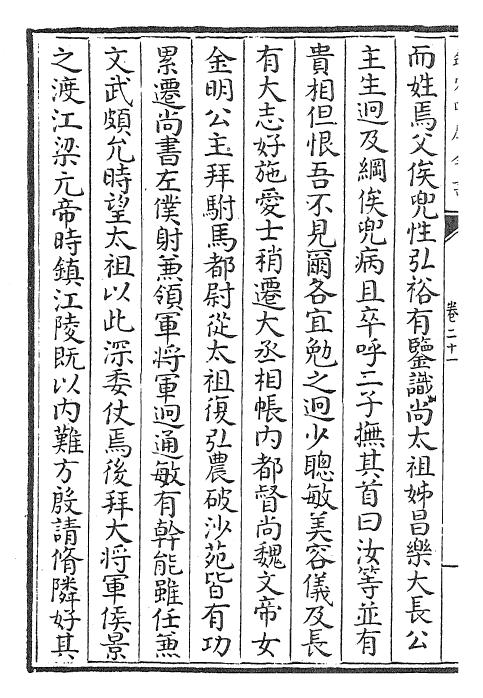 卷二十一
而姓焉父俟兜性弘裕有鑒識尚太祖姊昌樂大長公
主生迥及綱俟兜病且卒呼二子撫其首曰汝等並有
貴相但恨吾不見爾各宜勉之迥少聰敏美容儀及長
有大志好施愛士稍遷大丞相帳內都督尚魏文帝女
金明公主拜駙馬都尉從太祖復弘農破沙苑皆有功
累遷尚書左僕射兼領軍將軍迥通敏有幹能雖任兼
文武頗允時望太祖以此深委仗焉後拜大將軍侯景
之渡江梁元帝時鎮江陵既以內難方殷請脩隣好其